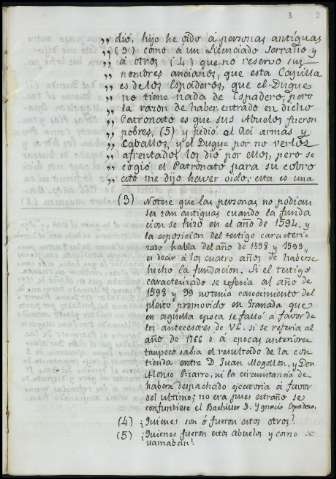 3
„ dio, hijo he oido a personas antiguas
„ (3) como a un Licenciado Serrano y
„ a otros (4) que no reservo sus
„ nombres ancianos, que esta Capilla
„ es de los Espaderos, que el Duque
„ no tiene nada de Espadero, pero
„ la razon de haber entrado en dicho
„ Patronato es que sus Abuelos fueron
„ pobres, (5) y pidió al Rei armas y
„ Caballos, y el Duque por no verlos
„ afrentados los dio por ellos, pero se
„ cogió el Patronato para su cobro
„ esto me dijo haver oido, esta es una
(3) Notese que las personas no podian
ser tan antiguas cuando la funda
cion se hizo en el año de 1594, y
la esposicion del testigo caracteri
zado habla del año de 1598 y 1599,
es decir á los cuatro años de haberse
hecho la fundacion. Si el testigo
caracterizado se referia al año de
1598 y 99 no tenia conocimiento del
pleito promovido en Granada que
en aquella epoca se falló a favor de
los antecesores de Vd. si se referia al
año de 1766 ó a epocas anteriores
tampoco sabia el resultado de la con
tienda entre D. Juan Mogollon, y Don
Alonso Pizarro, ni la circunstancia de
haberse despachado egecutoria á favor
del ultimo; no era pues estraño se
confundiese el Bachiller D. Ygnacio
(4) ¿Quienes son ó fueron estos otros?
(5) ¿Quienes fueron estos Abuelos y como se
llamaban?